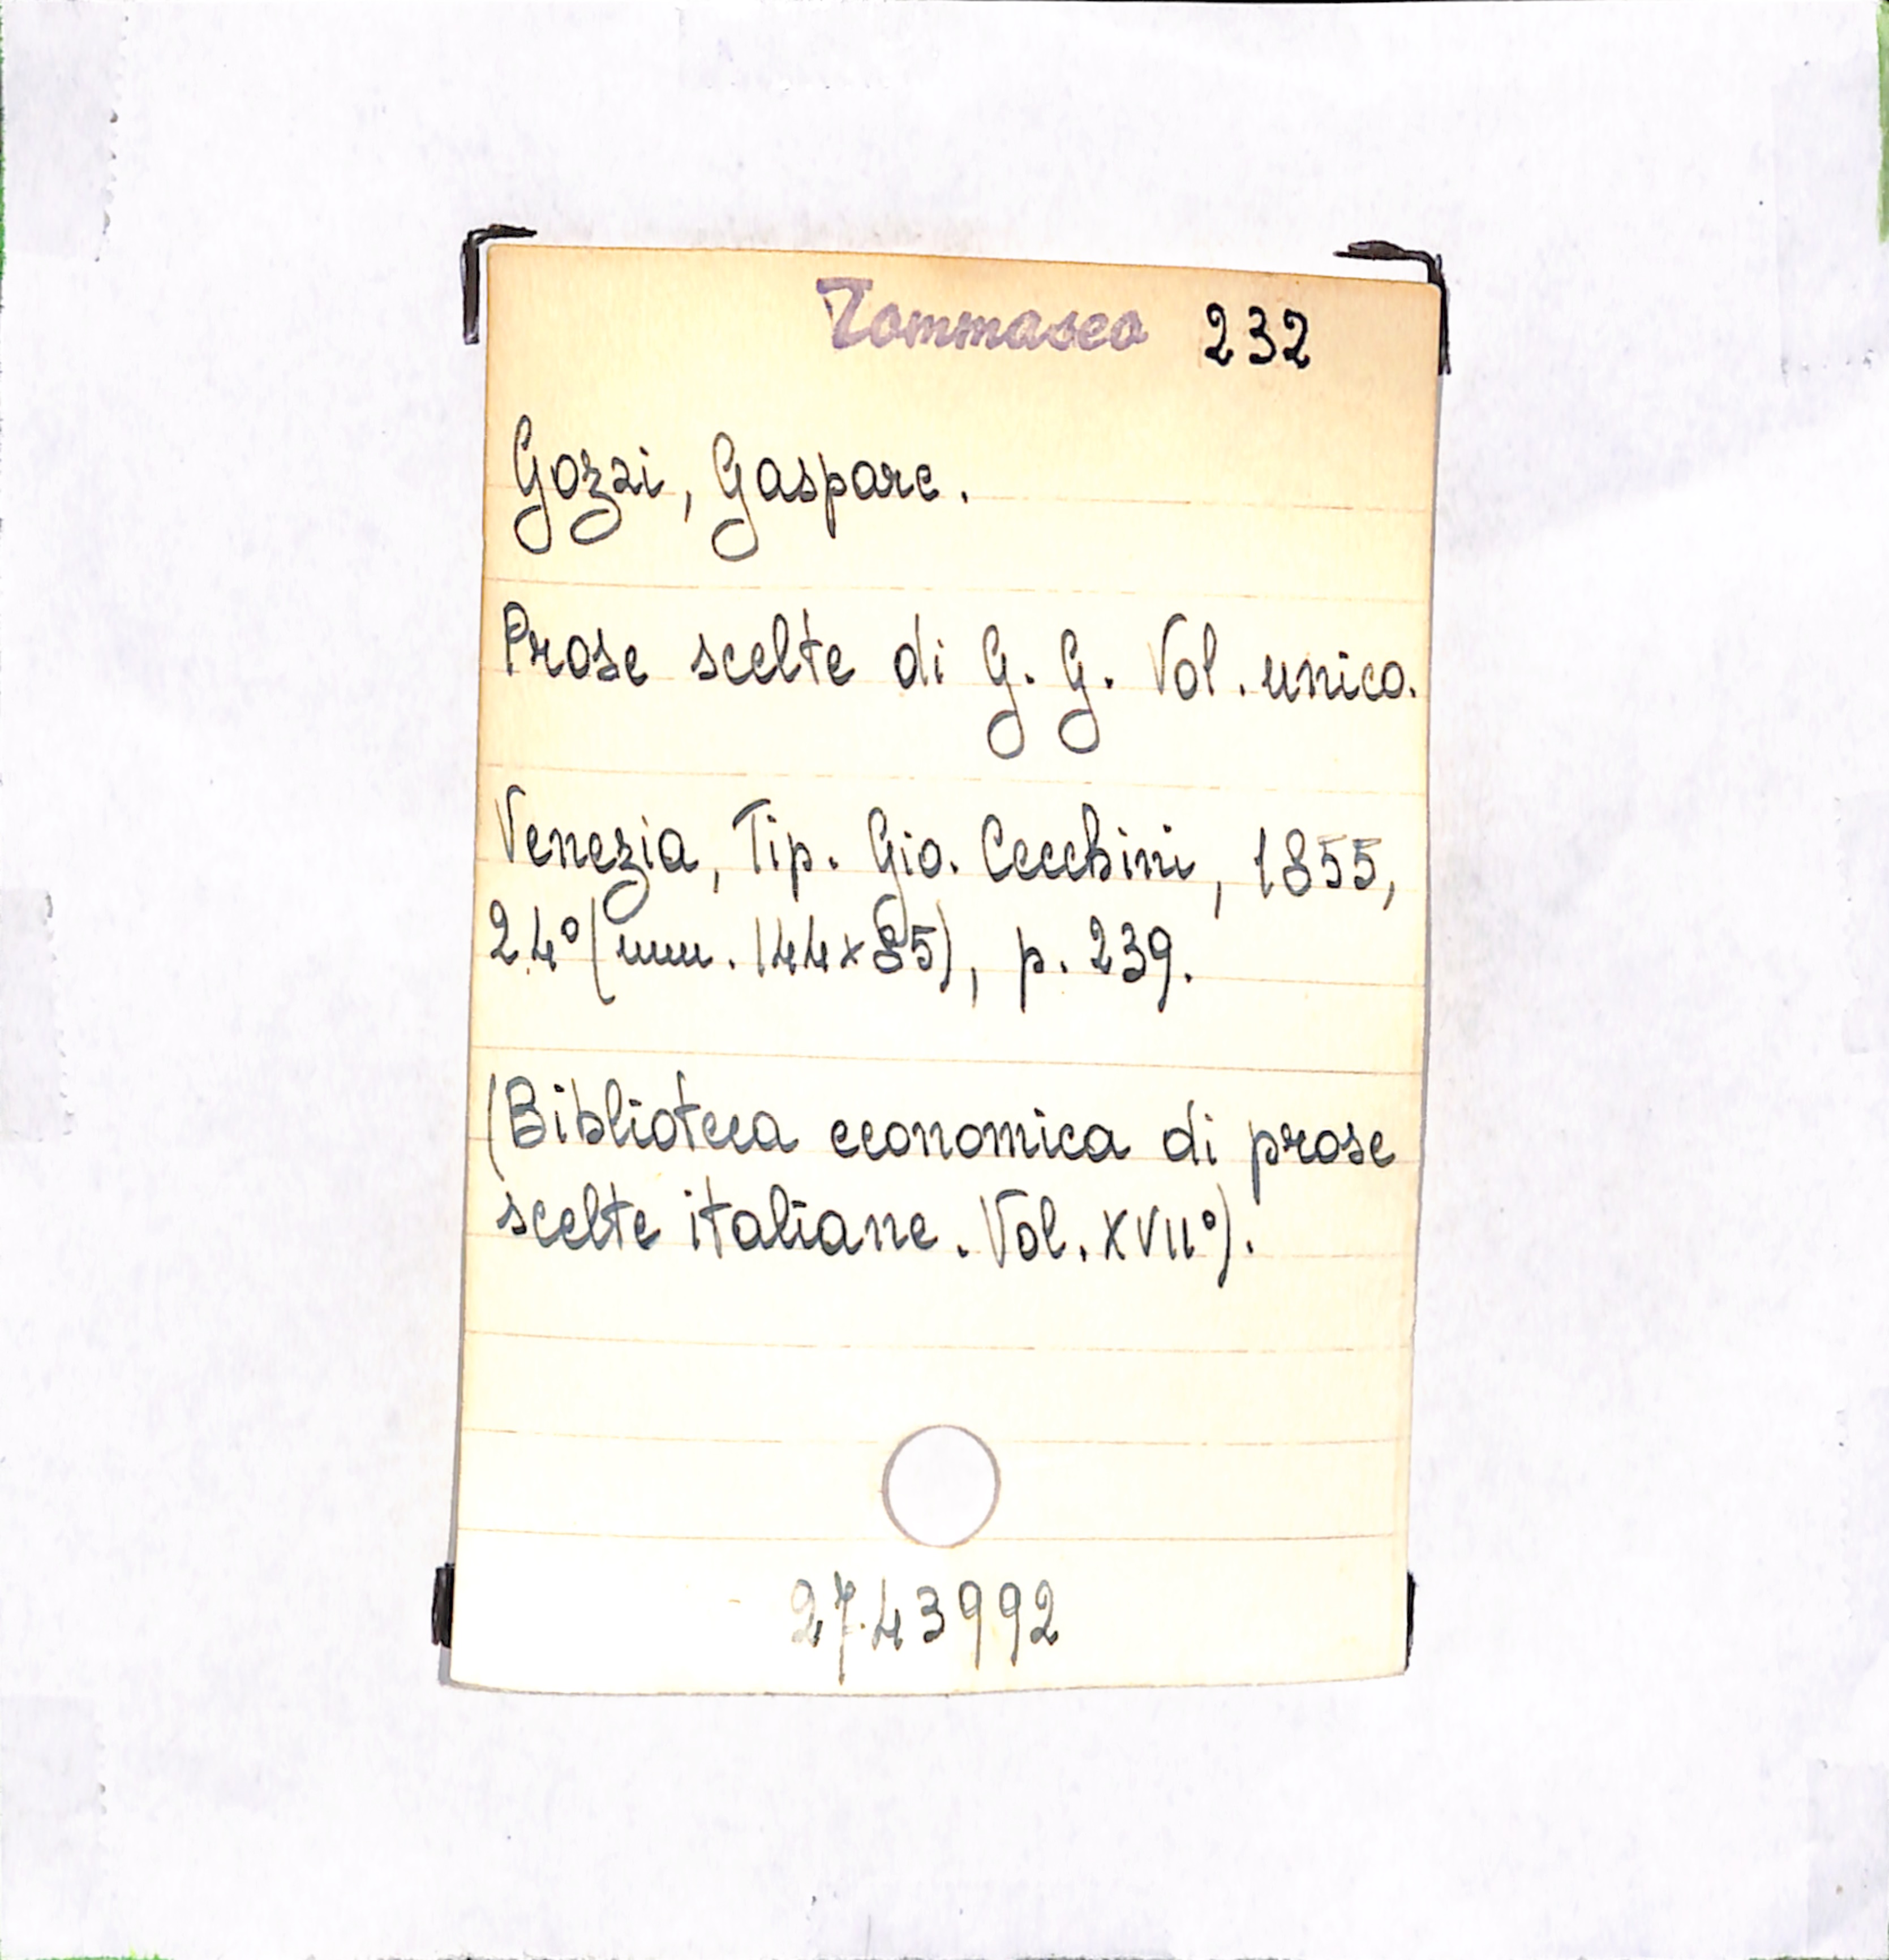 Tommaseo 232
Gozzi, Gaspare.
Prose scelte di G. G. Vol. unico.
Venezia, Tip. Gio. Cecchini, 1855,
24° (mm. 144x85), p. 239.
(Biblioteca economica di prose
scelte italiane. Vol. XVII°).
2743992